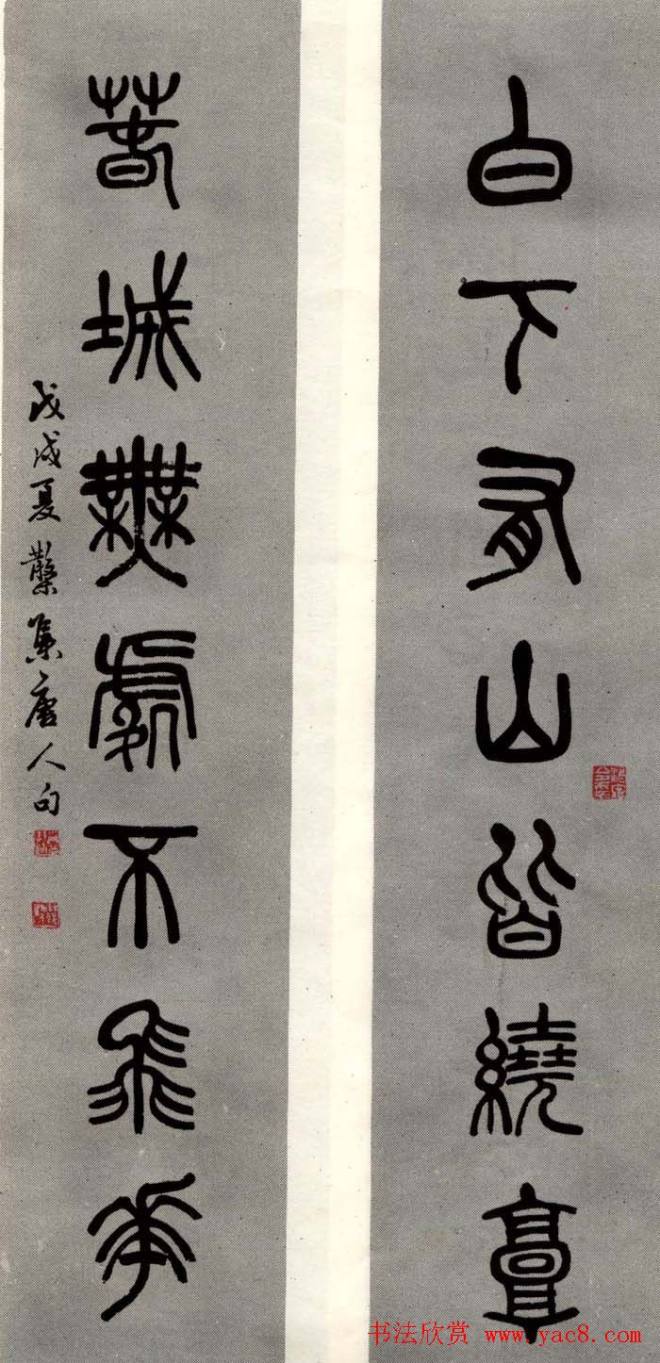 白下有山皆繞郭
春城無處不飛花
戊戌夏集唐人句
书法欣赏 www.yac8.com